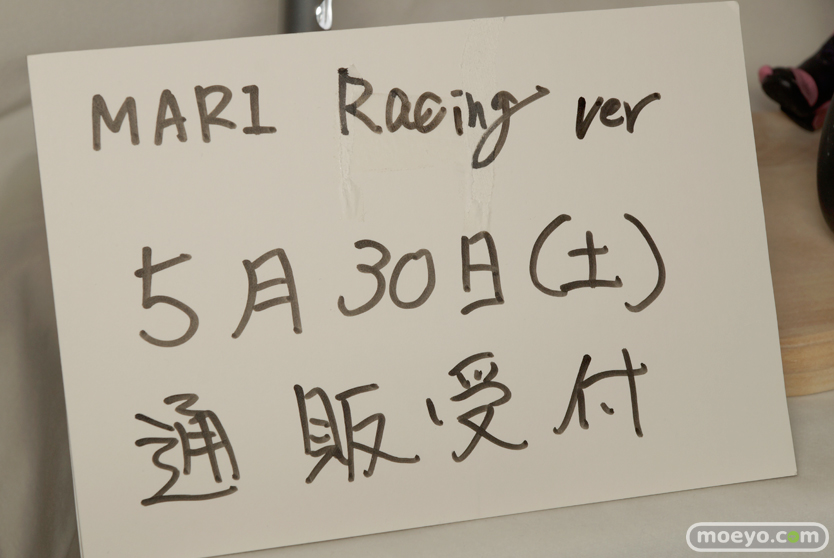 MARI Racing ver
5月30日(土)
通販受付
moeyo.com